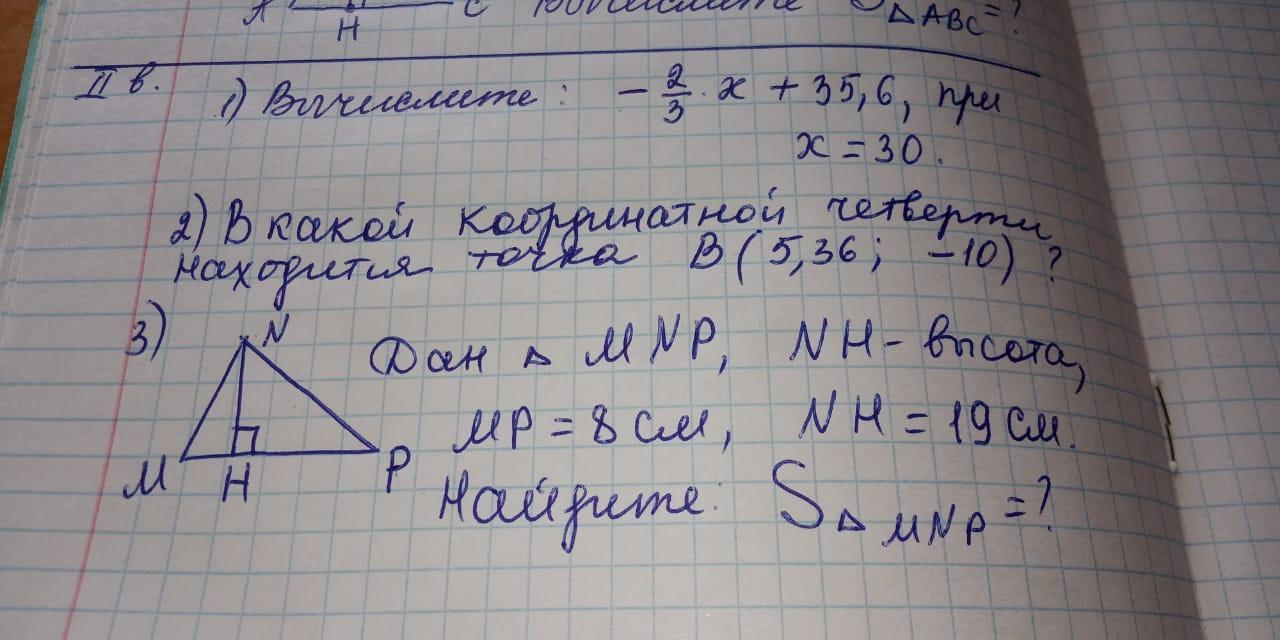 A H C Вычислите S △ ABC = ?
II в.
1) Вычислите: - 2/3 · x + 35,6, при
x = 30.
2) В какой координатной четверти
находится точка B (5,36; -10) ?
3) N
Дан △ MNP, NH - высота,
MP = 8 см, NH = 19 см.
M H P
Найдите: S △ MNP = ?